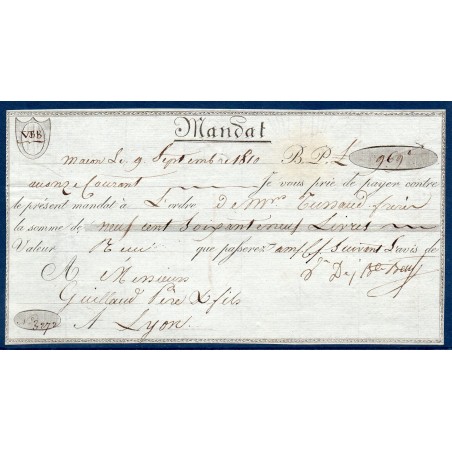 VBB
Mandat
Macon Le 9 Septembre 1810 B. P. £ 969"
au onze Courant Je vous prie de payer contre
le présent mandat à L'ordre d Mrs frères
la somme de neuf cent soixante neuf Livres
Valeur Reçue que passerez Suivant L'avis de
A Messieurs
Guillaud Père & fils
A Lyon.